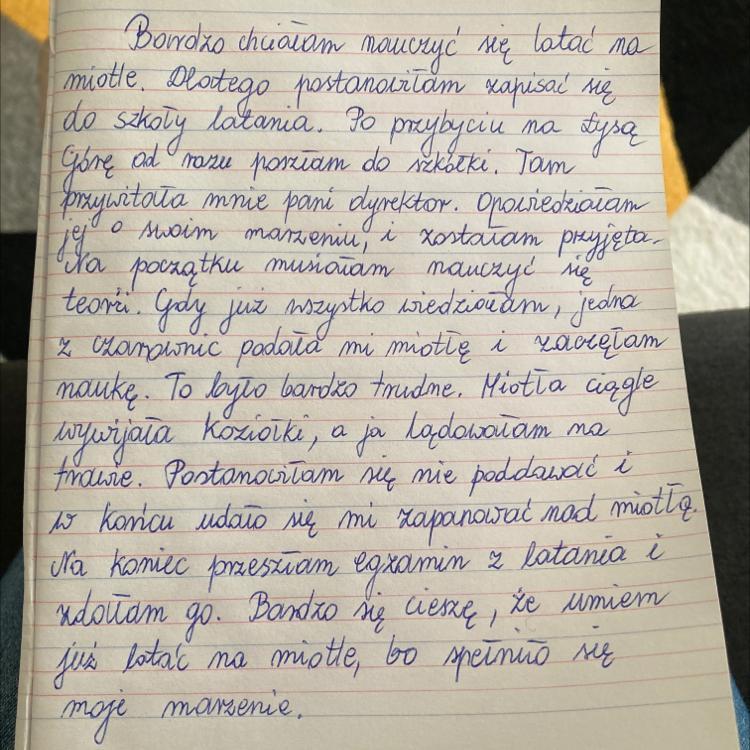 Bardzo chciałam nauczyć się latać na
miotle. Dlatego postanowiłam zapisać się
do szkoły latania. Po przybyciu na Łysą
Górę od razu poszłam do szkółki. Tam
przywitała mnie pani dyrektor. Opowiedziałam
jej o swoim marzeniu, i zostałam przyjęta.
Na początku musiałam nauczyć się
teorii. Gdy już wszystko wiedziałam, jedna
z czarownic podała mi miotłę i zaczęłam
naukę. To było bardzo trudne. Miotła ciągle
wywijała koziołki, a ja lądowałam na
trawie. Postanowiłam się nie poddawać i
w końcu udało się mi zapanować nad miotłą.
Na koniec przeszłam egzamin z latania i
zdołłam go. Bardzo się cieszę, że umiem
już latać na miotle, bo spełniło się
moje marzenie.